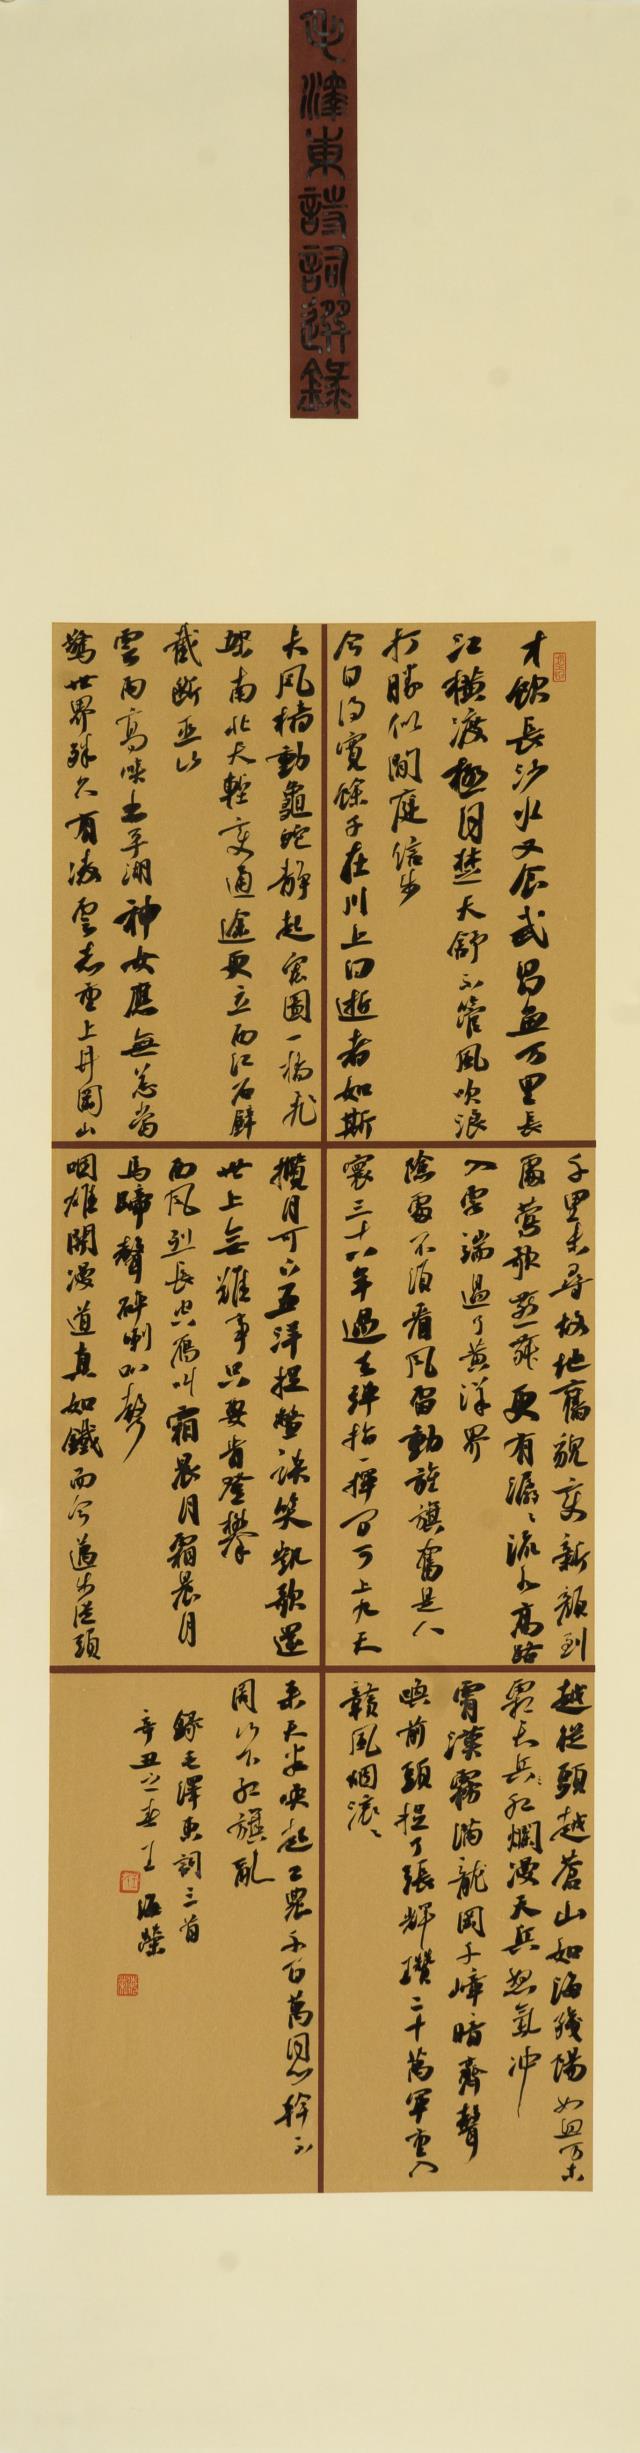 毛澤東詩詞選錄
才飲長沙水又食武昌魚万里長
江橫渡極目楚天舒不管風吹浪
打勝似閒庭信步
今日得寬餘子在川上曰逝者如斯
夫風檣動龜蛇靜起宏圖一橋飛
架南北天塹變通途更立西江石壁
截斷巫山
雲雨高峽出平湖神女應無恙當
驚世界殊久有凌雲志重上井岡山
千里來尋故地舊貌變新顏到
處鶯歌燕舞更有潺々流水高路
入雲端過了黃洋界
險處不須看風雷動旌旗奮是人
寰三十八年過去彈指一揮間可上九天
攬月可下五洋捉鱉談笑凱歌還
世上無難事只要肯登攀
西風烈長空雁叫霜晨月霜晨月
馬蹄聲碎喇叭聲
咽雄關漫道真如鐵而今邁步從頭
越從頭越蒼山如海殘陽如血万木
霜天兵紅爛漫天兵怒氣沖
霄漢霧滿龍岡千嶂暗齊聲
喚前頭捉了張輝瓚二十萬軍重入
贛風烟滾々
來天半喚起工農千百萬同心幹不
周山下紅旗亂
錄毛澤東詞三首
辛丑之春王海榮